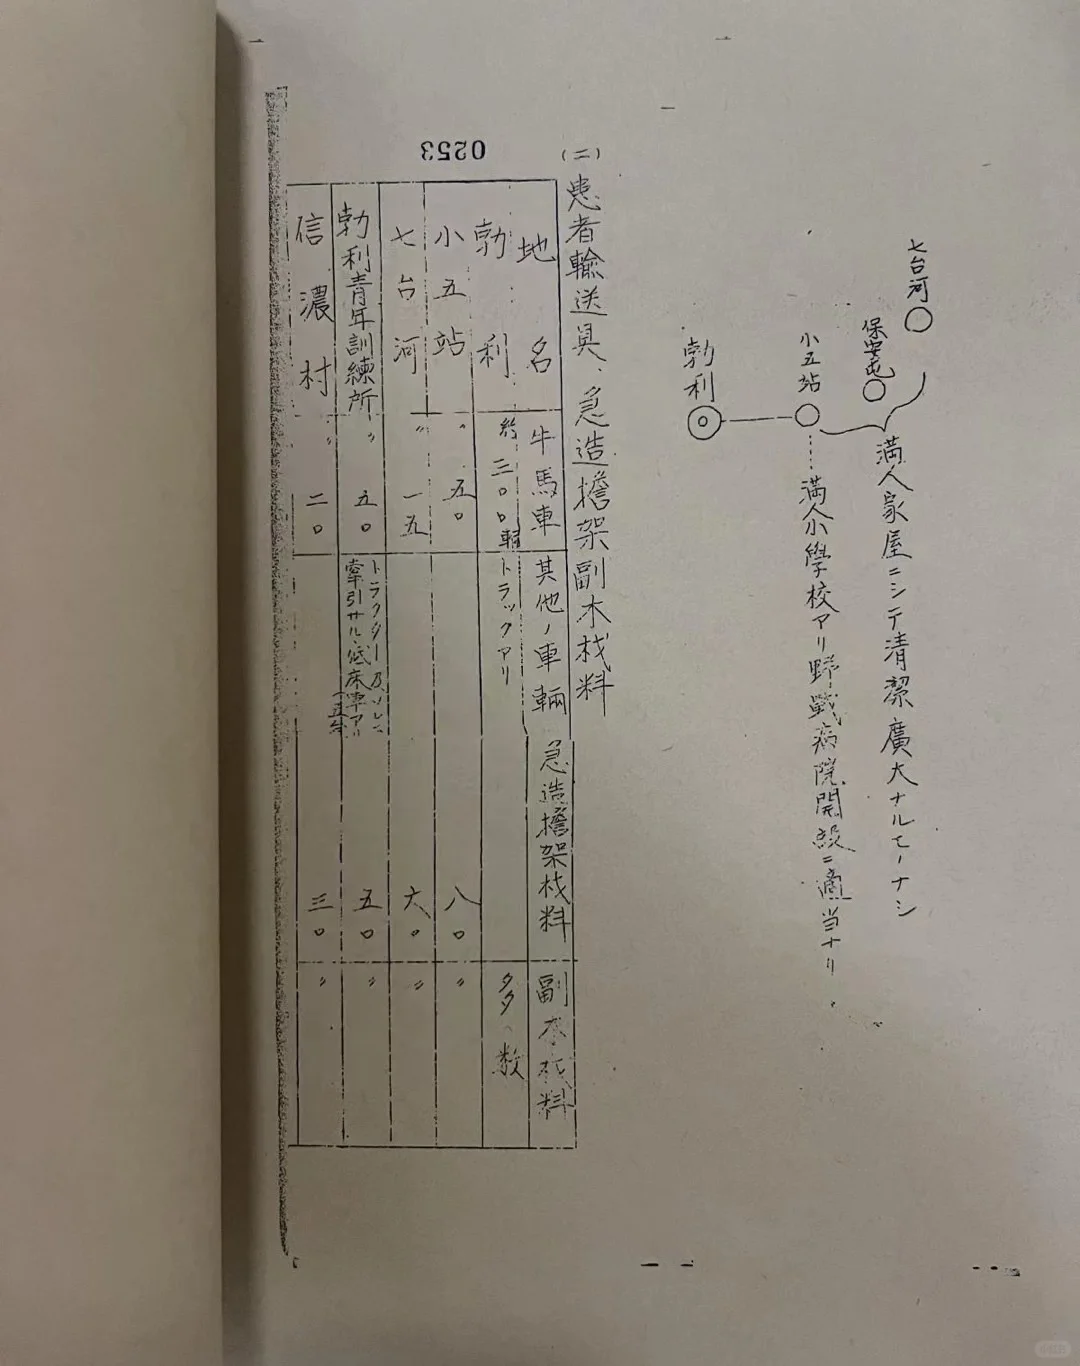 七台河
保安屯
満人家屋ニシテ清潔廣大ナルモノナシ
小五站
満人小學校アリ野戰病院開設ニ適当ナリ
勃利
(二)患者輸送具、急造擔架副木材料
地名 牛馬車 其他ノ車輛 急造擔架材料 副木材料
勃利 約三〇〇輛 トラックアリ 多数
小五站 〃 五〇 八〇 〃
七台河 〃 一五 六〇 〃
勃利青年訓練所 〃 五〇 トラクター 牽引サル 床車アリ 五〇 〃
信濃村 〃 二〇 三〇 〃
0253